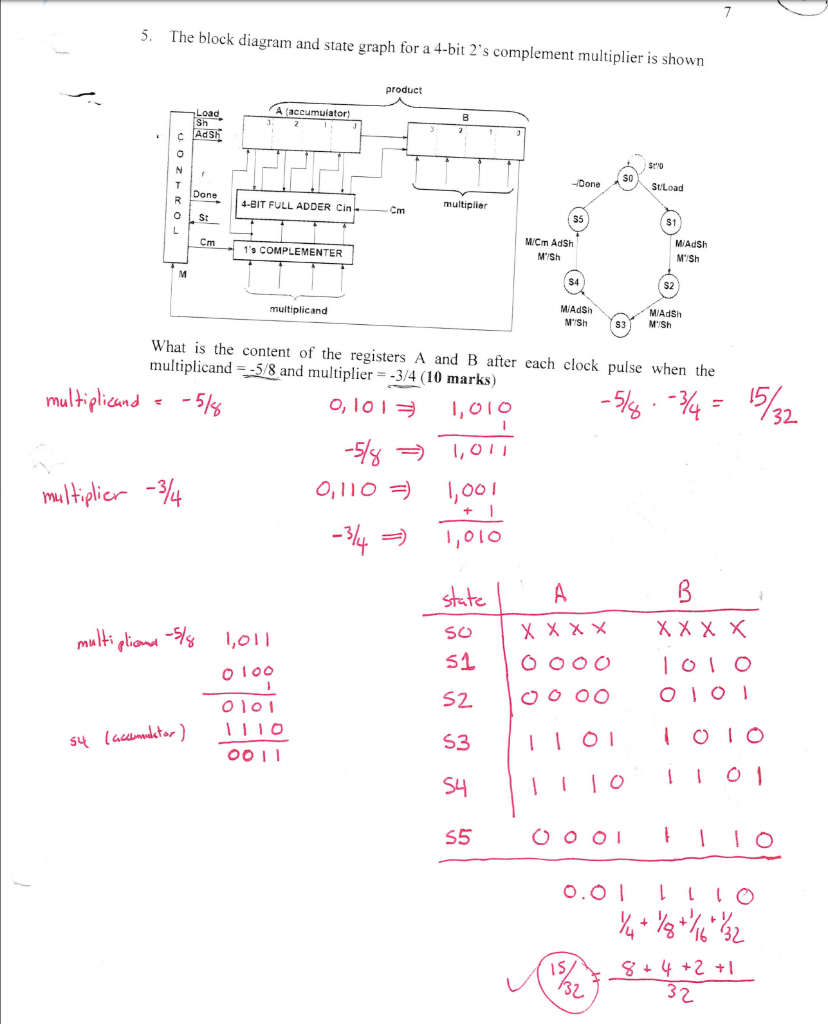 7
5. The block diagram and state graph for a 4-bit 2's complement multiplier is shown
product
Load
Sh
AdSh
A (accumulator)
3 2 1 0
B
3 2 1 0
CONTROL
Done
St
Cm
M
4-BIT FULL ADDER Cin
Cm
multiplier
1's COMPLEMENTER
multiplicand
St'/0
S0
-/Done
St/Load
S5
S1
M/Cm AdSh
M'/Sh
M/AdSh
M'/Sh
S4
S2
M/AdSh
M'/Sh
S3
M/AdSh
M'/Sh
What is the content of the registers A and B after each clock pulse when the
multiplicand = -5/8 and multiplier = -3/4 (10 marks)
multiplicand = -5/8
0,101 ⇒ 1,010
1
-5/8 ⇒ 1,011
-5/8 . -3/4 = 15/32
multiplier -3/4
0,110 ⇒ 1,001
+ 1
-3/4 ⇒ 1,010
state A B
S0 X X X X X X X X
S1 0 0 0 0 1 0 1 0
S2 0 0 0 0 0 1 0 1
S3 1 1 0 1 1 0 1 0
S4 1 1 1 0 1 1 0 1
S5 0 0 0 1 1 1 1 0
multipliand -5/8 1,011
0100
1
0101
S4 (accumulator) 1110
0011
0.01 1110
1/4 + 1/8 + 1/16 + 1/32
✓ 15/32 = 8 + 4 + 2 + 1
32